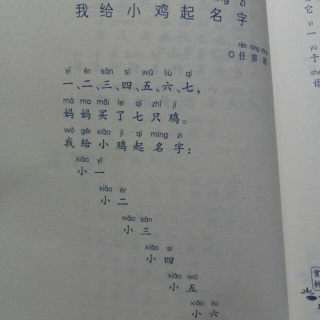 我给小鸡起名字
yī èr sān sì wǔ liù qī
一、二、三、四、五、六、七，
mā ma mǎi le qī zhī jī
妈妈买了七只鸡。
wǒ gěi xiǎo jī qǐ míng zi
我给小鸡起名字：
xiǎo yī
小一
xiǎo èr
小二
xiǎo sān
小三
xiǎo sì
小四
xiǎo wǔ
小五
xiǎo liù
小六
它
一
于
赏析